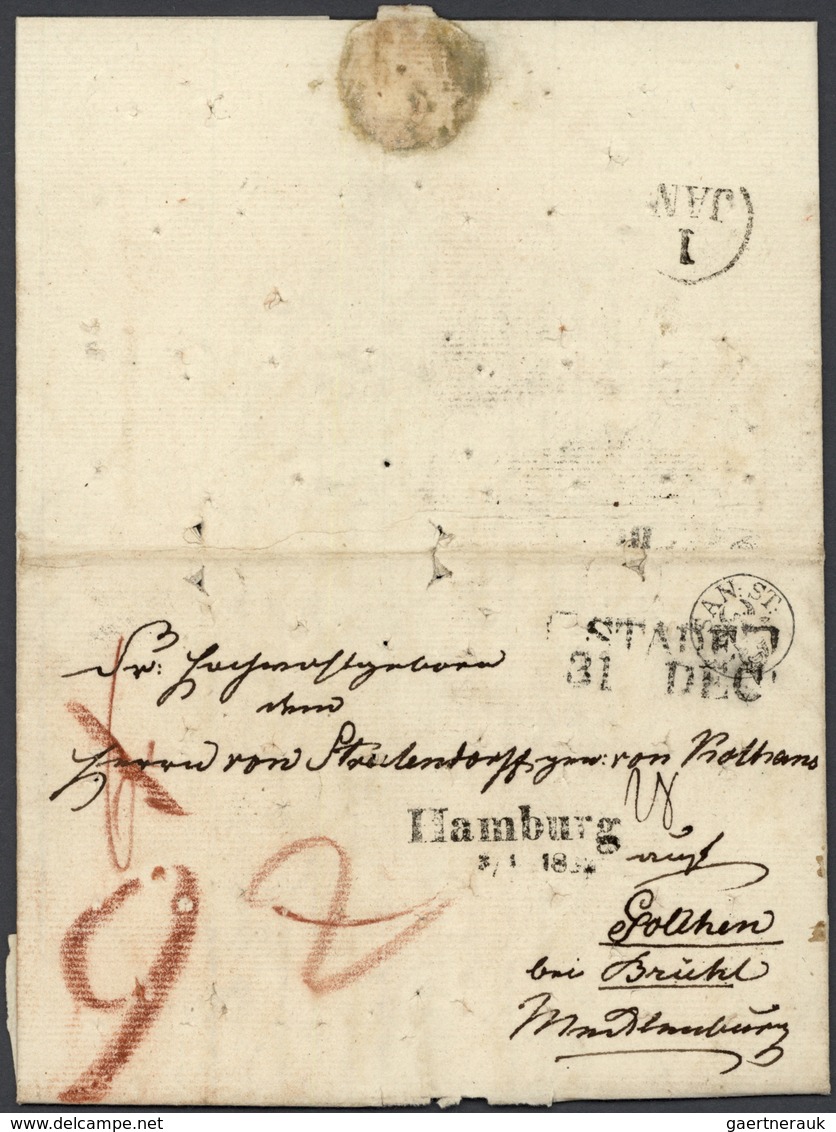 JAN
1
SAN: ST:
STADE
31 DEC:
Sr: Hochwohlgeboren
dem
Herrn von Stralendorff, gen: von Kolhans
Hamburg
1 18
auf
Golchen
bei Brühl
Mecklenburg
9 2
gaertnerauk